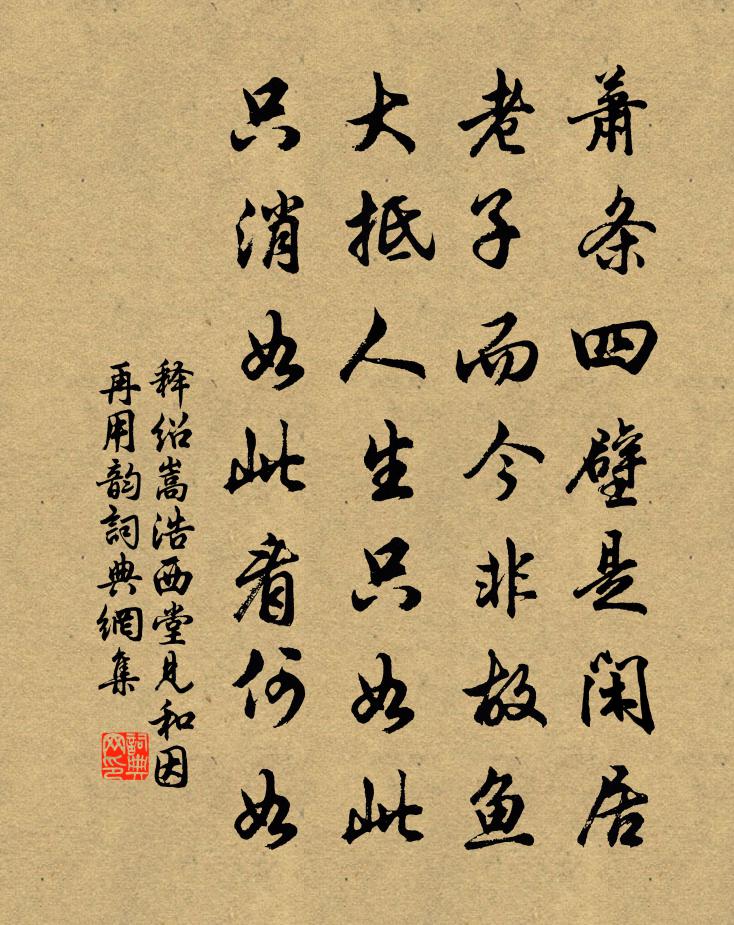 萧条四壁是闲居
老子而今非故鱼
大抵人生只如此
只消如此看何如
释绍嵩浩西堂见和因
再用韵詞典網集
詞典网印